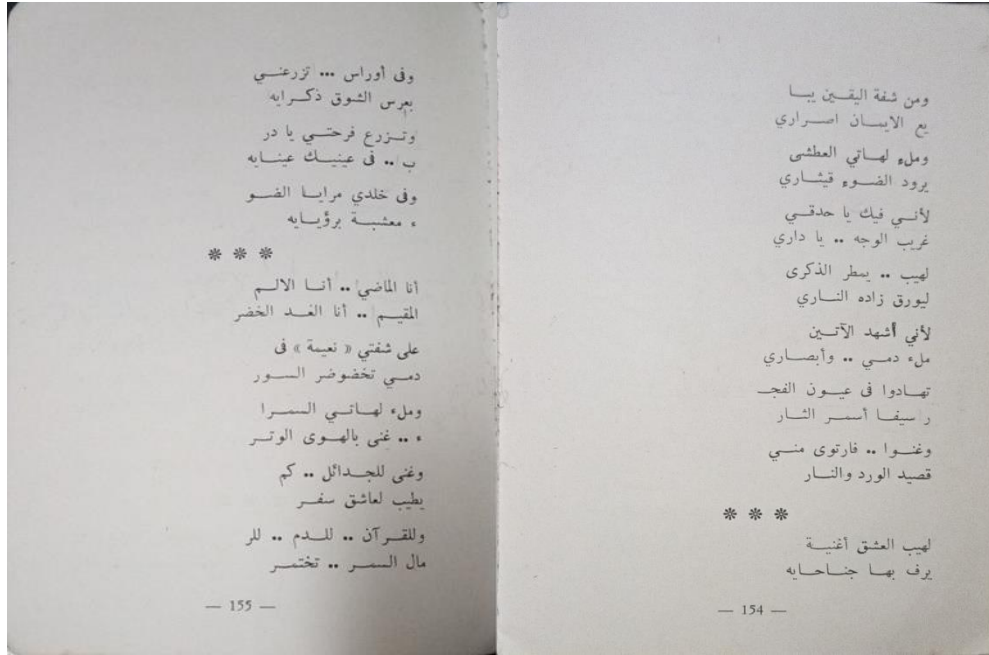 ومن شفة اليقين يبا
يع الايمان اصراري
وملء لهاتي العطشى
يرود الضوء قيثاري
لأني فيك يا حدقي
غريب الوجه .. يا داري
لهيب .. يمطر الذكرى
ليورق زاده الناري
لأني أشهد الآتين
ملء دمي .. وأبصاري
تهادوا فى عيون الفجـ
ر سيفا أسمر الثار
وغنوا .. فارتوى مني
قصيد الورد والنار
* * *
لهيب العشق أغنية
يرف بها جناحايه
— 154 —
وفى أوراس ... تزرعني
بعرس الشوق ذكرايه
وتزرع فرحتي يا در
ب .. فى عينيك عينايه
وفى خلدي مرايا الضو
ء معشبة برؤيايه
* * *
أنا الماضي .. أنا الالم
المقيم .. أنا الغد الخضر
على شفتي « نعيمة » فى
دمي تخضوضر السور
وملء لهاتي السمرا
ء .. غنى بالهوى الوتر
وغنى للجدائل .. كم
يطيب لعاشق سفر
وللقرآن .. للدم .. للر
مال السمر .. تختمر
— 155 —